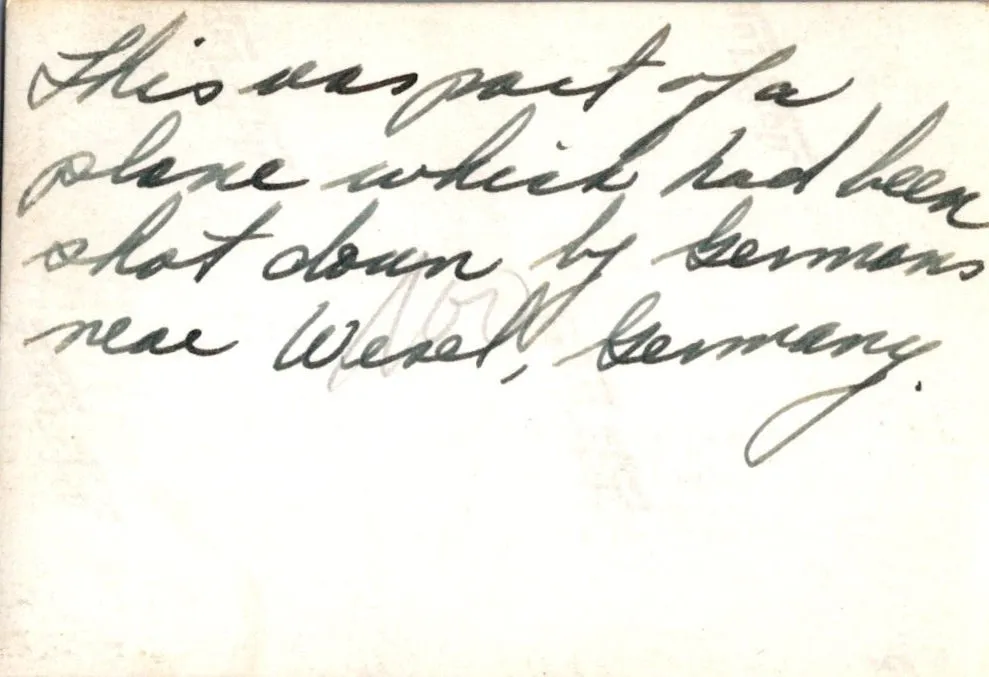 This was part of a
plane which had been
shot down by Germans
near Wesel, Germany.